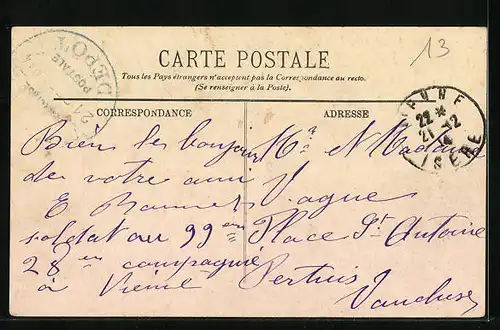 13
CARTE POSTALE
Tous les Pays étrangers n'acceptent pas la Correspondance au recto.
(Se renseigner à la Poste).
DEPOT
POSTALE
CORRESPONDANCE
ADRESSE
22 *
21 - 12
ISERE
Bien les bonjour
de votre ami
E
soldat au 99eme
28en compagnie
à Viene
Ma N Madame
Vague
Place St Antoine
Pertuis
Vaucluse